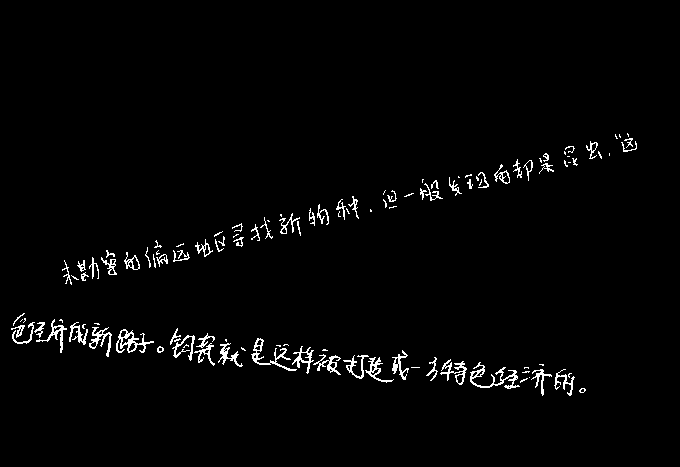 未勘察的偏远地区寻找新物种，但一般发现的都是昆虫，“这
色经济的新路子。钧瓷就是这样被打造成一方特色经济的。